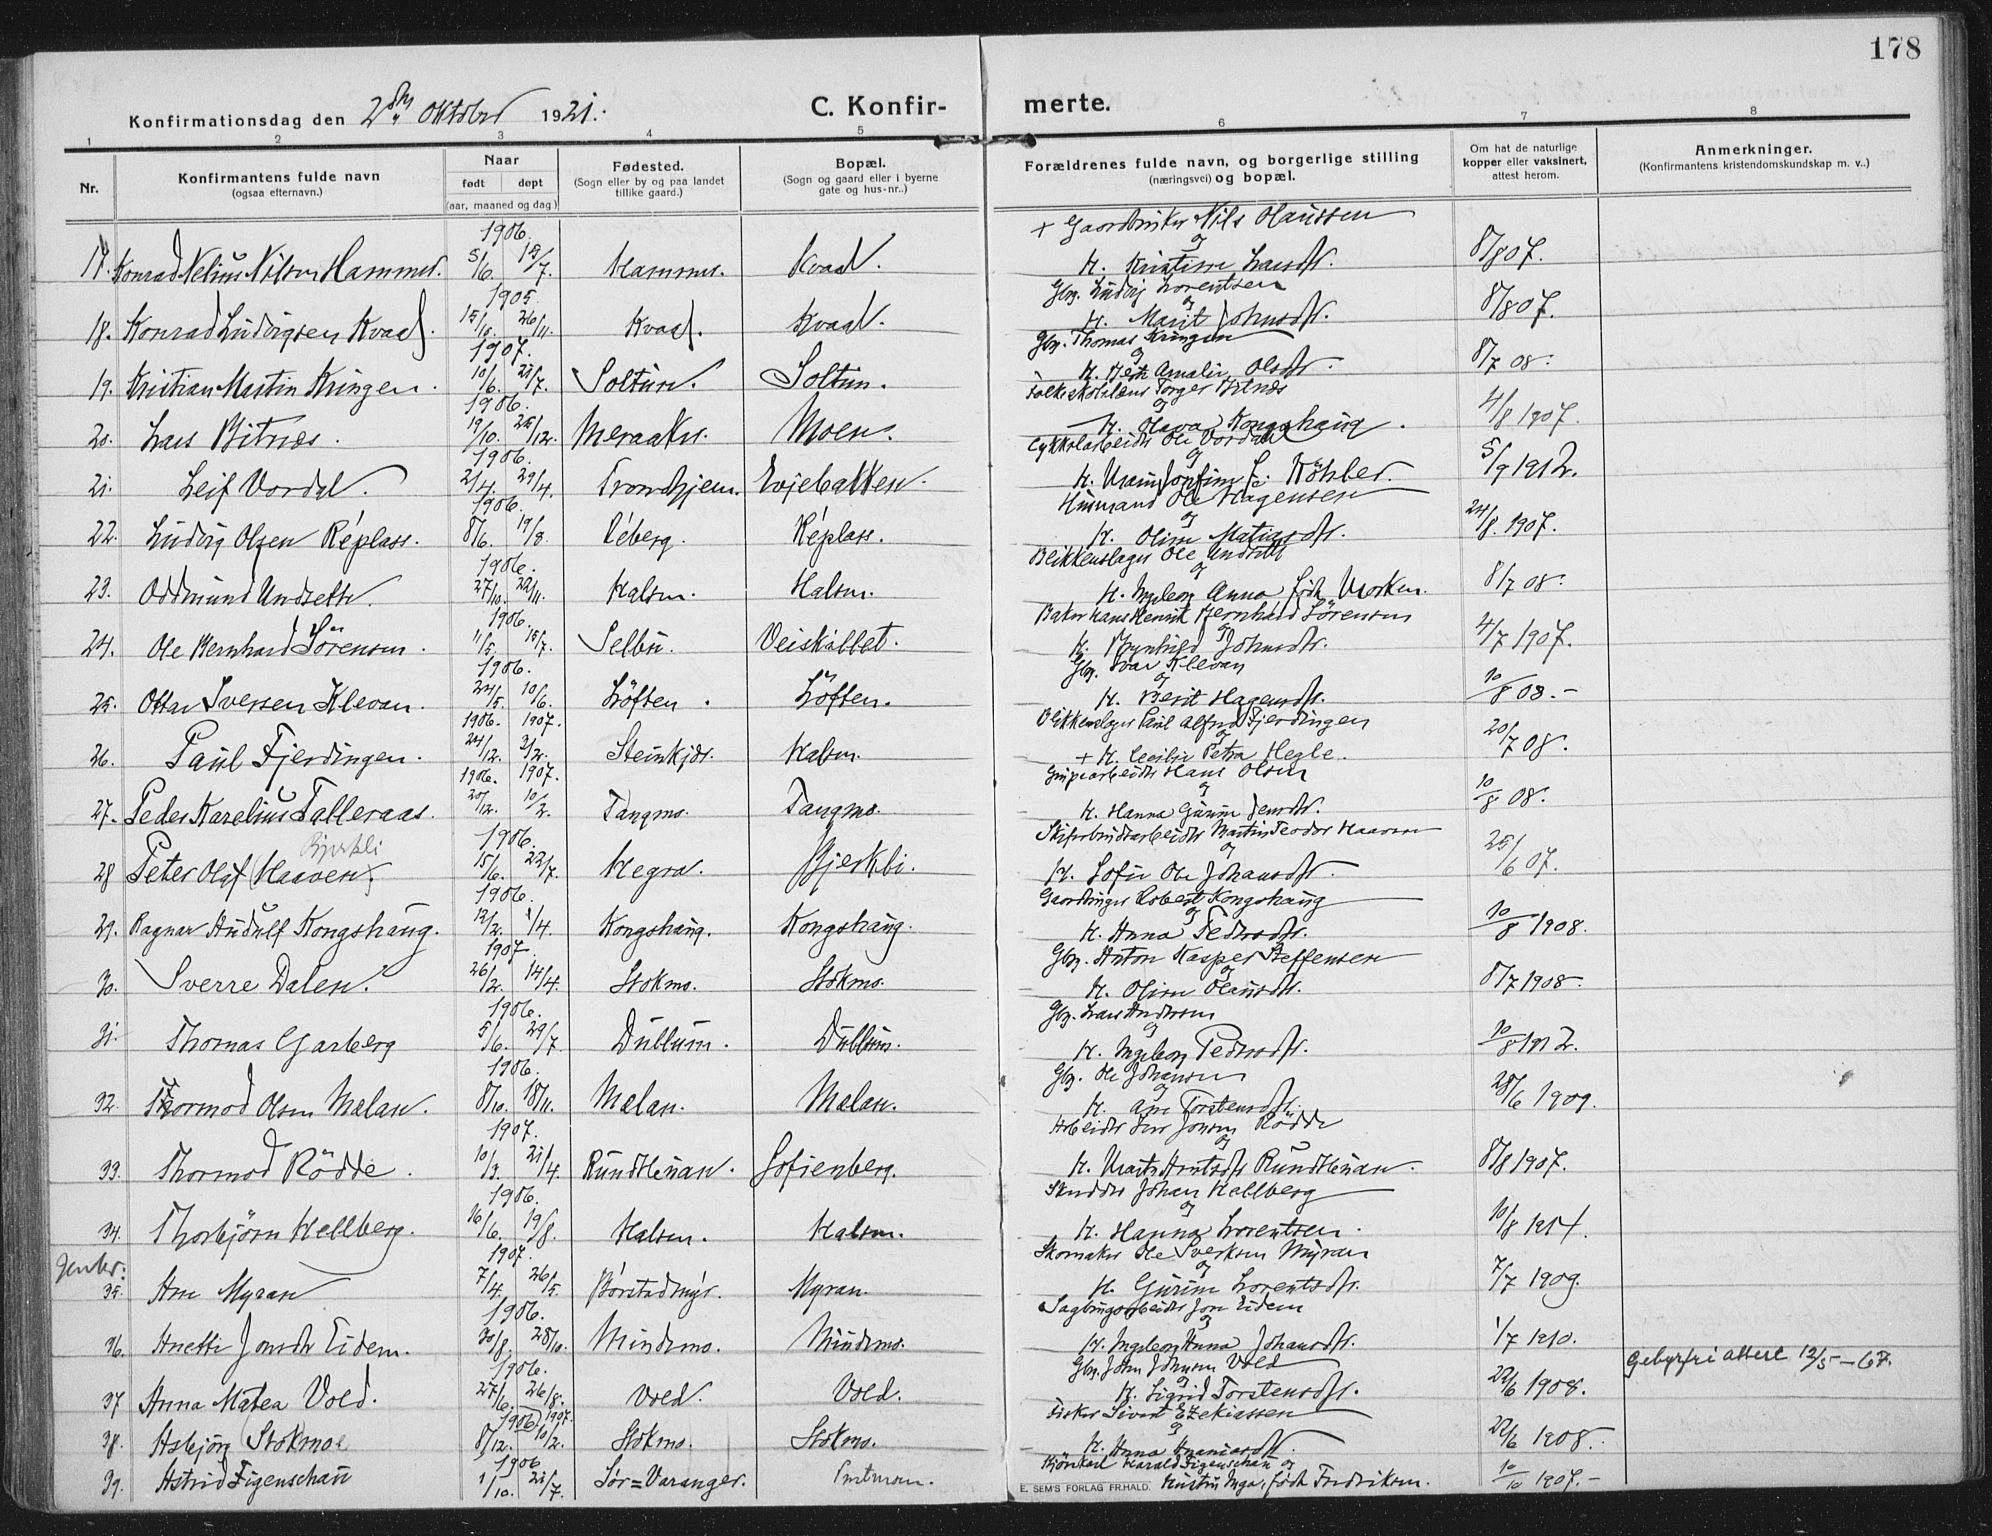 178
Konfirmationsdag den 2den Oktober 1921.
C. Konfir- merte.
1 2 3 4 5 6 7 8
Nr.
Konfirmantens fulde navn
(ogsaa efternavn.)
Naar
født døpt
(aar, maaned og dag)
Fødested.
(Sogn eller by og paa landet
tillike gaard.)
Bopæl.
(Sogn og gaard eller i byerne
gate og hus-nr..)
Forældrenes fulde navn, og borgerlige stilling
(næringsvei) og bopæl.
Om hat de naturlige
kopper eller vaksinert,
attest herom.
Anmerkninger.
(Konfirmantens kristendomskundskap m. v..)
1906. + Gaardbruker Nils Olaussen
og
17. Konrad Nelius Nilsen Hammer. 5/6. 15/7. Hammer. Kvaal. H. Kristine Larsdtr. 8/8 07.
1905. Gbr. Ludvig Lorentsen
og
18. Konrad Ludvigsen Kvaal. 15/10. 26/11. Kvaal. Kvaal. H. Marit Johnsdtr. 8/8 07.
1907. Gbr. Thomas Kringen
og
19. Kristian Martin Kringen. 10/6. 21/7. Soltun. Soltun. H. Amalie Olsdtr. 8/7 08.
1906. Torger Bitnæs
og
20. Lars Bitnæs. 19/10. 25/12. Meraaker. Moen. H. Olava Kongshaug. 4/8 1907.
1906. Ole Vordal
og
21. Leif Vordal. 2/4. 29/4. Trondhjem. Evjebakken. H. Köhler. 5/9 1912.
1906. Husmand Ole Hagensen
og
22. Ludvig Olsen Réplass. 8/6. 19/8. Réberg. Réplass. H. Oline Matiasdtr. 24/8. 1907.
1906. Blikkenslager Ole Undseth
og
23. Oddmund Undseth. 27/10. 22/11. Halsen. Halsen. H. Ingeborg Anna født Morken. 8/7 08.
1906. Baker Hans Henrik Bernhard Sörensen
og
24. Ole Bernhard Sörensen. 11/5. 15/7. Selbu. Veiskillet. H. Brynhild Johnsdtr. 4/7 1907.
1906. Gbr. Ivar Klevan
og
25. Ottar Iversen Klevan. 24/5. 10/6. Löften. Löften. H. Berit Hagensdtr. 10/8 08.-
1906. 1907. Blikkenslager Paul Alfred Fjerdingen
og
26. Paul Fjerdingen. 24/12. 3/2. Steinkjær. Halsen. + H. Cecilie Petra Hegle. 20/7 08.
1906. 1907. Grupearbeider Hans Olsen
og
27. Peder Karelius Talleraas. 20/12. 10/2. Tangmo. Tangmo. H. Hanna Gurine Jensdtr. 10/8 08.
Bjerkli 1906. Skiferbrudsarbeider Martin Teodor Haaven
og
28 Peter Olaf (Haaven) 15/6. 22/7. Hegra. Bjerkli. H. Sofie Ole Johansdtr. 25/6 07.
1906. Gaardbruger Robert Kongshaug
og
29. Ragnar Audulf Kongshaug. 12/2. 1/4. Kongshaug. Kongshaug. H. Anna Pedersdtr. 10/8 1908.
1907. Gbr. Anton Kasper Steffensen
og
30. Sverre Dalen. 26/2. 14/4. Stokmo. Stokmo. H. Oline Olausdtr. 8/7 1908.
1906. Gbr. Lars Andersen
og
31. Thomas Garberg 5/6. 29/7. Dullum. Dullum. H. Ingeborg Pedersdtr. 10/8 1912.
1906. Gbr. Ole Johansen
og
32. Thormod Olsen Mælan. 8/10. 18/11. Mælan. Mælan. H. Ane Torstensdtr. 28/6 1909.
1907. Arbeider Jens Jonsen Rödde
og
33. Thormod Rödde. 10/3. 21/4. Rundhaugan. Sofienberg. H. Marta Arntsdtr. 8/8 1907.
1906. Skrædder Johan Hellberg
og
34. Thorbjörn Hellberg. 16/6. 19/8. Halsen. Halsen. H. Hanna Lorentsen. 10/8 1914.
Jenter: 1907. Skomaker Ole Sverksen Myran
og
35. Ane Myran 7/4. 26/5. Börstadmyr. Myran. H. Gurine Lorentsdtr. 7/7 1909
1906. Sagbrugsarbeider Jon Eidem
og
36. Anette Jonsdtr Eidem. 30/8. 28/10. Mindemo. Mindemo. H. Ingeborg Anna Johansdtr. 1/7 1910.
1906. Gbr. John Johnsen Vold
og
37 Anna Matea Vold. 27/6. 26/8. Vold. Vold. H. Sigrid Torstensdtr. 22/6 1908. Gebyrfri attest 12/5-67.
1906 1907. Fisker Sivert Ezekiassen
og
38. Asbjörg Stokmoe 8/12. 10/2. Stokmo. Stokmo. H. Anna Ananiasdtr. 22/6 1908.
1906 Harald Figenschau og
39. Astrid Figenschau 1/10. 21/7. Sör=Varanger. Hustru Inga, født Fredriksen. 10/10 1907.-
E. SEM'S FORLAG FR.HALD.